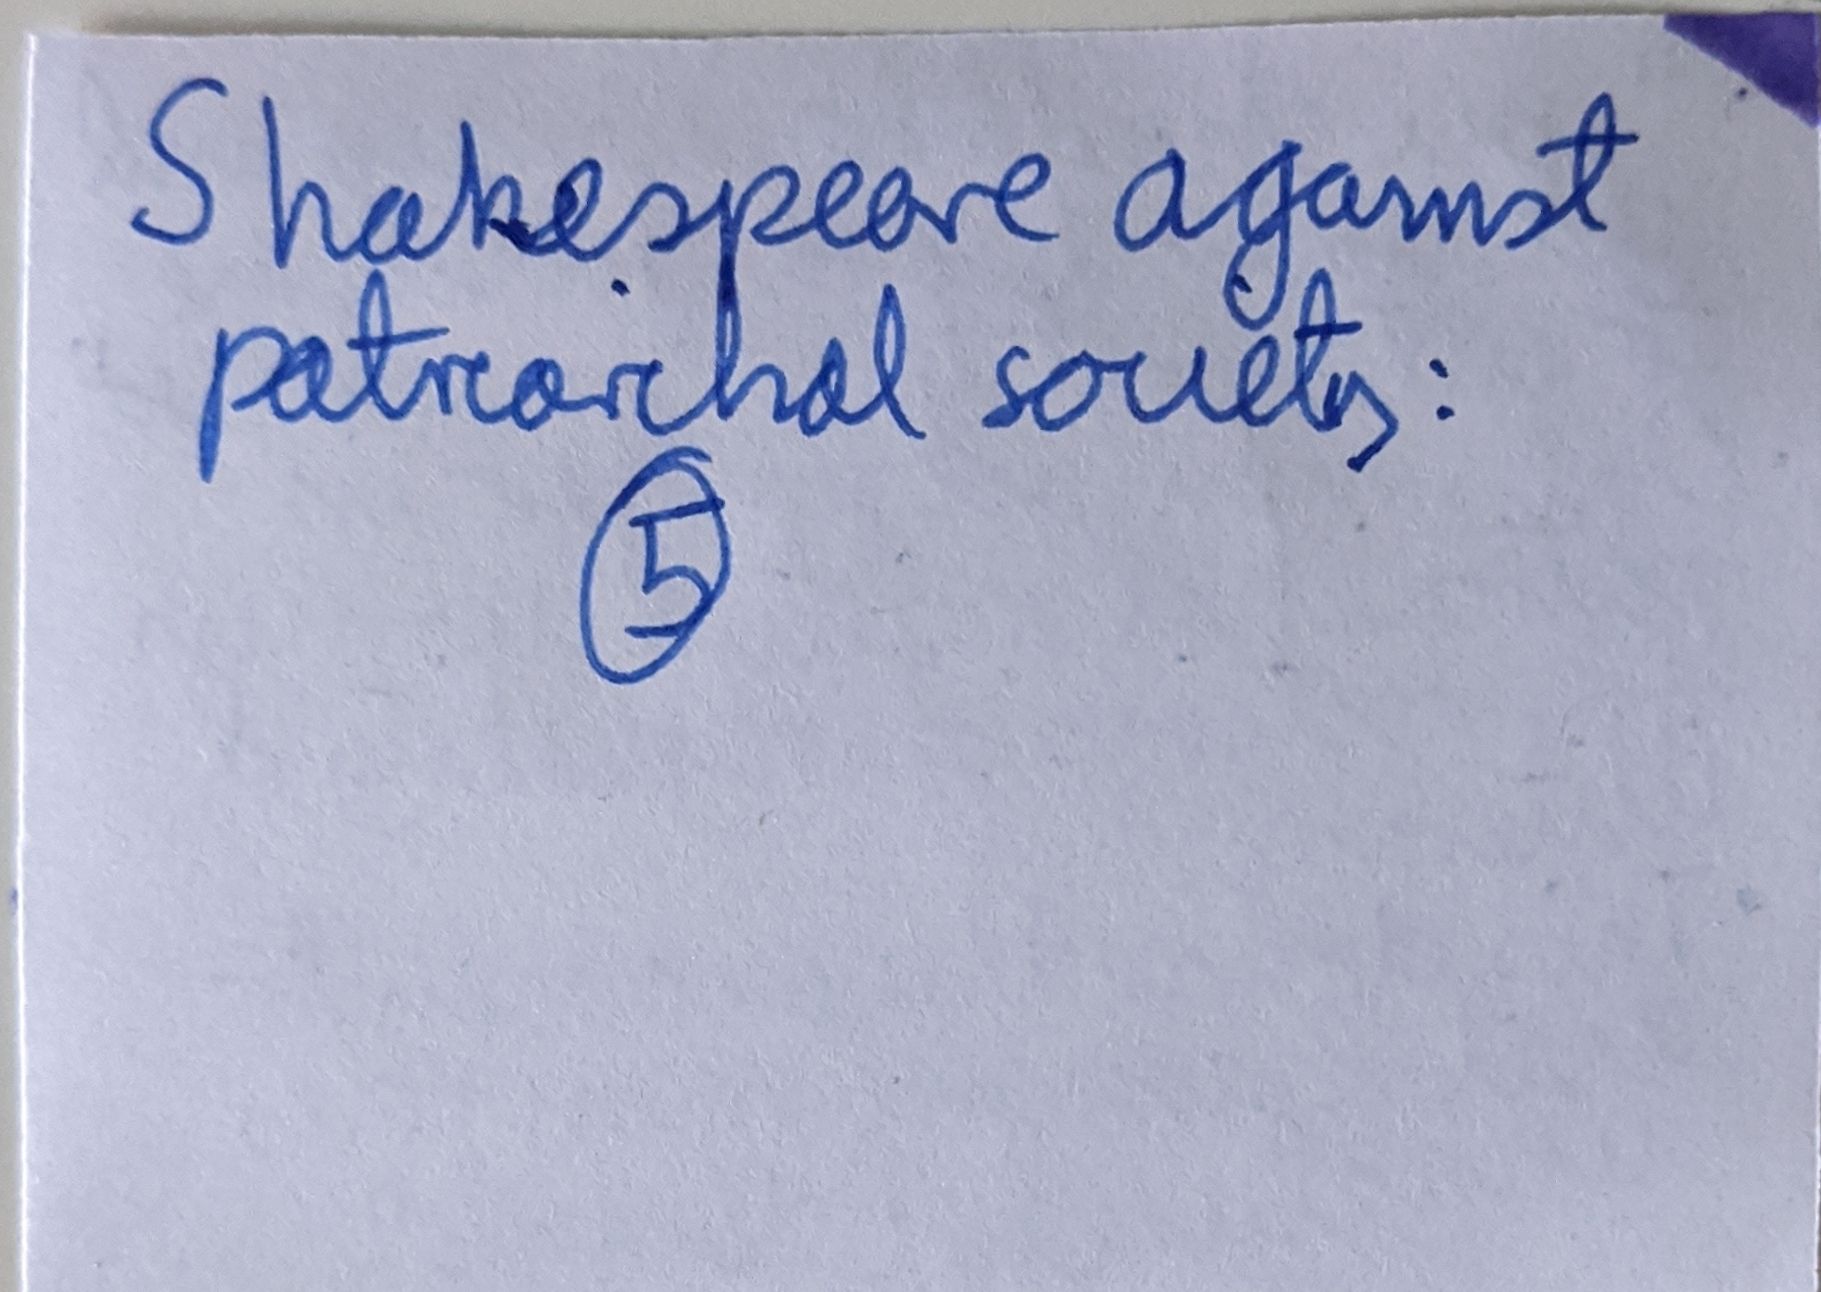 Shakespeare against
patriarchal society:
5